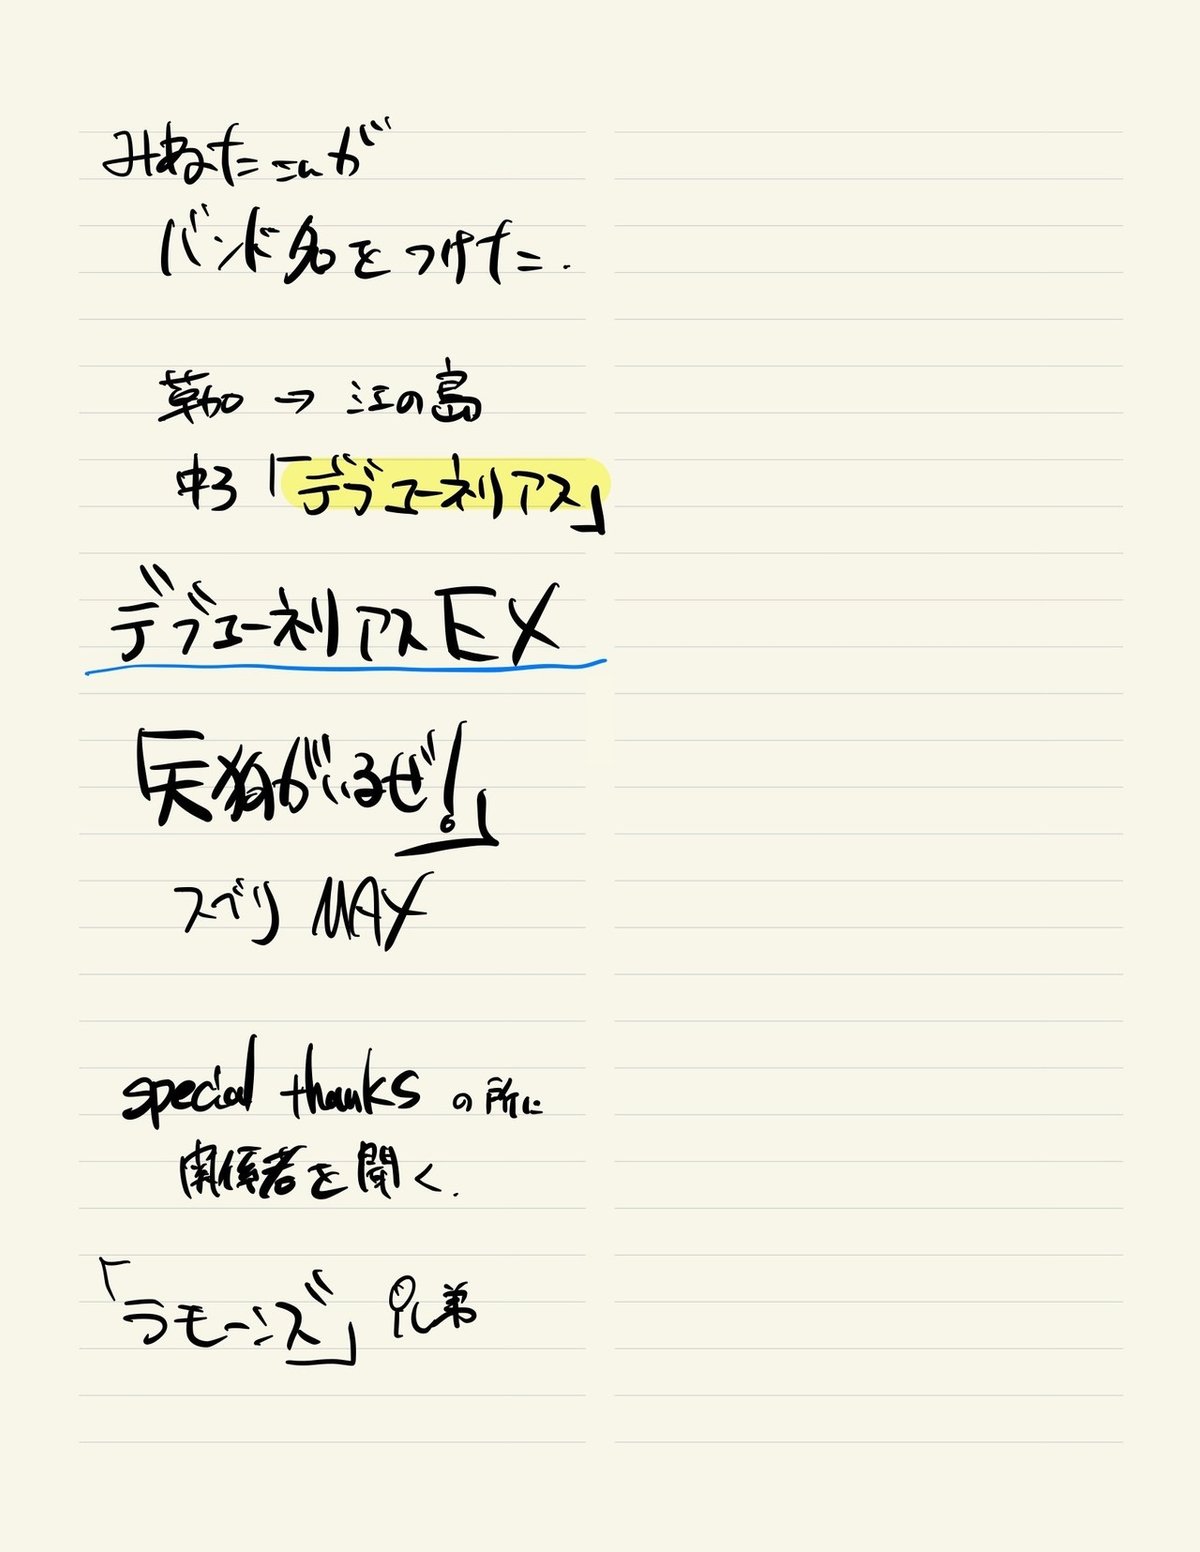 みねたこんが
バンド名をつけた.
草加 → 江の島
中3「デブューネリアス」
デブューネリアスEX
「天狗がいるぜ!」
スベリ MAX
special thanks の所に
関係者を聞く.
「ラモーンズ」兄弟